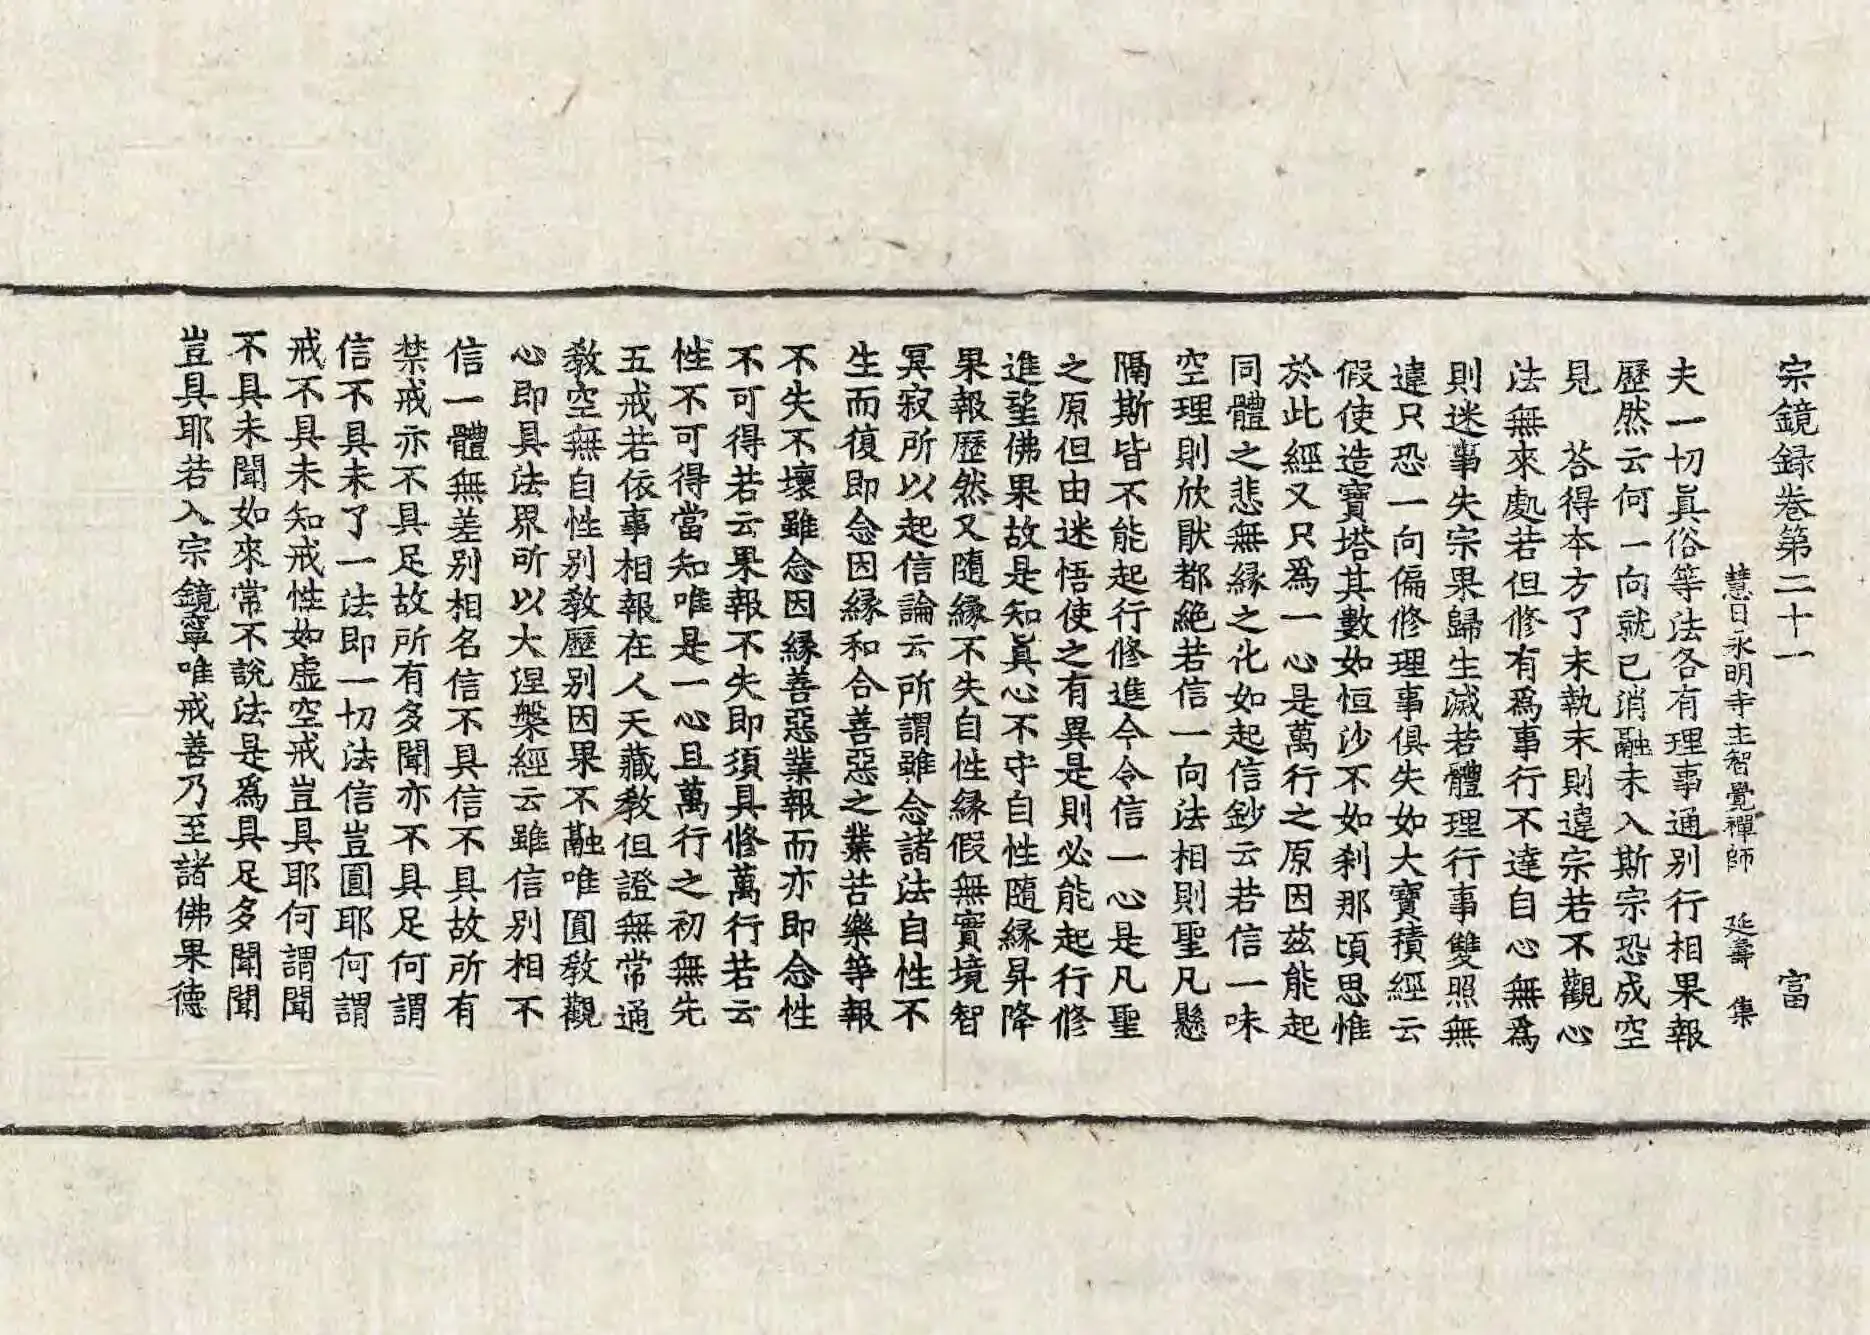 宗鏡録卷第二十一　富
慧日永明寺主智覺禪師　延壽　集
夫一切眞俗等法各有理事通別行相果報
歷然云何一向就已消融未入斯宗恐成空
見　荅得本方了末執末則違宗若不觀心
法無來處若但修有爲事行不達自心無爲
則迷事失宗果歸生滅若體理行事雙照無
違只恐一向偏修理事俱失如大寶積經云
假使造寶塔其數如恒沙不如刹那頃思惟
於此經又只爲一心是萬行之原因玆能起
同體之悲無緣之化如起信鈔云若信一味
空理則欣猒都絶若信一向法相則聖凡懸
隔斯皆不能起行修進今令信一心是凡聖
之原但由迷悟使之有異是則必能起行修
進望佛果故是知眞心不守自性隨緣昇降
果報歷然又隨緣不失自性緣假無實境智
冥寂所以起信論云所謂雖念諸法自性不
生而復即念因緣和合善惡之業苦樂等報
不失不壞雖念因緣善惡業報而亦即念性
不可得若云果報不失即須具修萬行若云
性不可得當知唯是一心且萬行之初無先
五戒若依事相報在人天藏教但證無常通
教空無自性別教歷別因果不融唯圓教觀
心即具法界所以大涅槃經云雖信別相不
信一體無差別相名信不具信不具故所有
禁戒亦不具足故所有多聞亦不具足何謂
信不具未了一法即一切法信豈圓耶何謂
戒不具未知戒性如虛空戒豈具耶何謂聞
不具未聞如來常不說法是爲具足多聞聞
豈具耶若入宗鏡寧唯戒善乃至諸佛果德